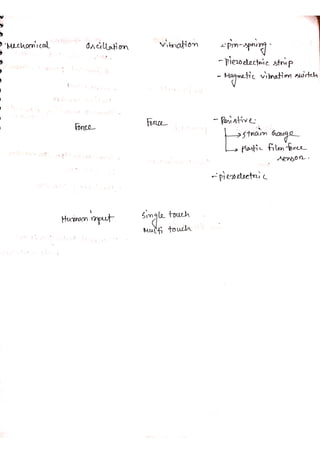 Mechanical Oscillation Vibration - pin-spring.
- Piezoelectric strip
- Magnetic vibration switch
Force Force - Resistive:
→ strain Gauge
→ Plastic film force sensor.
- piezoelectric
Human input Single touch
Multi touch